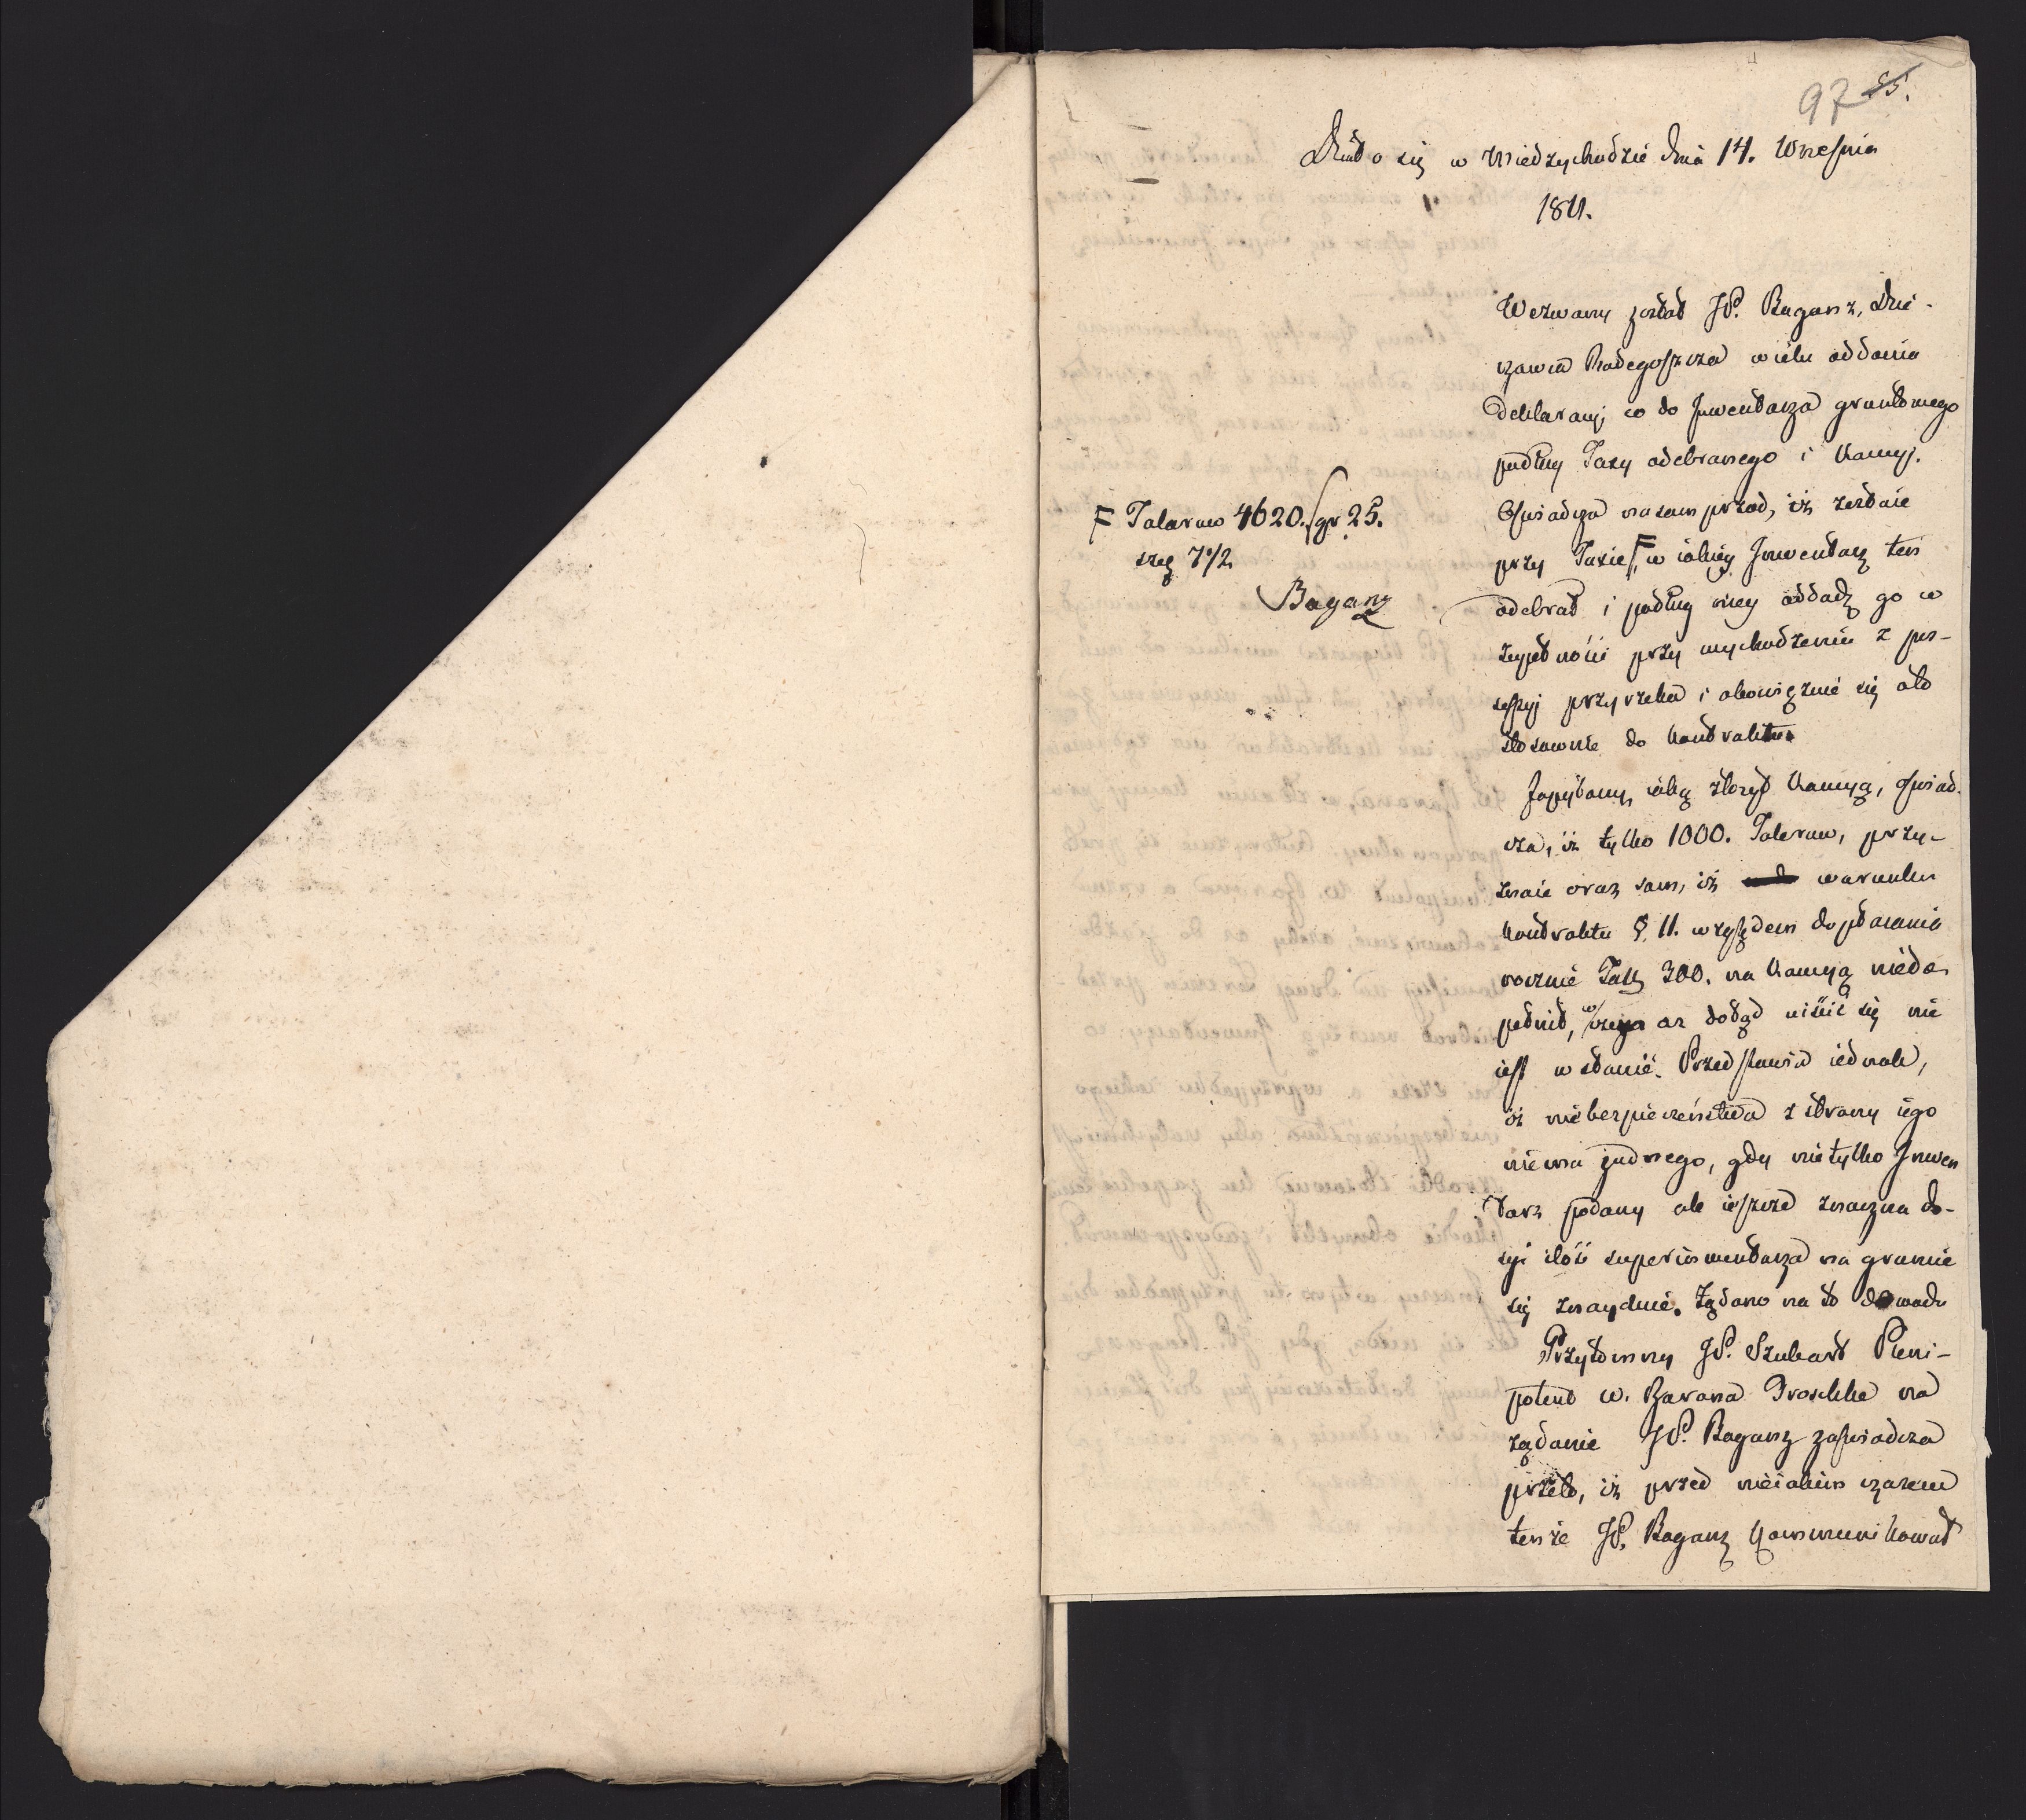 97 55.
Działo się w Międzychodzie dnia 14. Września
1811.
Wezwany został JP. Baganz, Dzie-
rzawca Radegoszcza w celu oddania
deklaracyi co do Inwentarza gruntowego
podług Taxy odebranego i Kaucyi.
Oświadcza nasamprzod, iż zostaie
przy Taxie F, w iakiey Inwentarz ten
odebrał i podług niey oddadz go w
zupełności przy wychodzeniu z pos-
sessyi przyrzeka i obowięzuie się ato
stosownie do Kontraktu
F Talarow 4620. gr 25.
szeg 7 1/2
Baganz
Zapytany, iaką złożył Kaucyą, oświad-
cza, iż tylko 1000. Talerow, przy-
znaie oraz sam, iż warunku
Kontraktu § 11. względem dopłacania
rocznie Tall 300. na Kaucyą niedo
pełnił, w czego az dotąd uiścić się nie
iest w stanie. Przedstawia iednak,
iż niebezpieczeństwa z strony iego
niema żadnego, gdy nietylko Inwen
tarz podany ale ieszcze znaczna do-
syć ilość superinwentarza na gruncie
się znayduie. Żądano na to dowodu
Przytomny JP. Szubart Pleni-
potent W. Barona Troschke na
żądanie JP. Baganz zaświadcza
przeto, iż przed nieiakim czasem
tenże JP. Baganz kommunikował